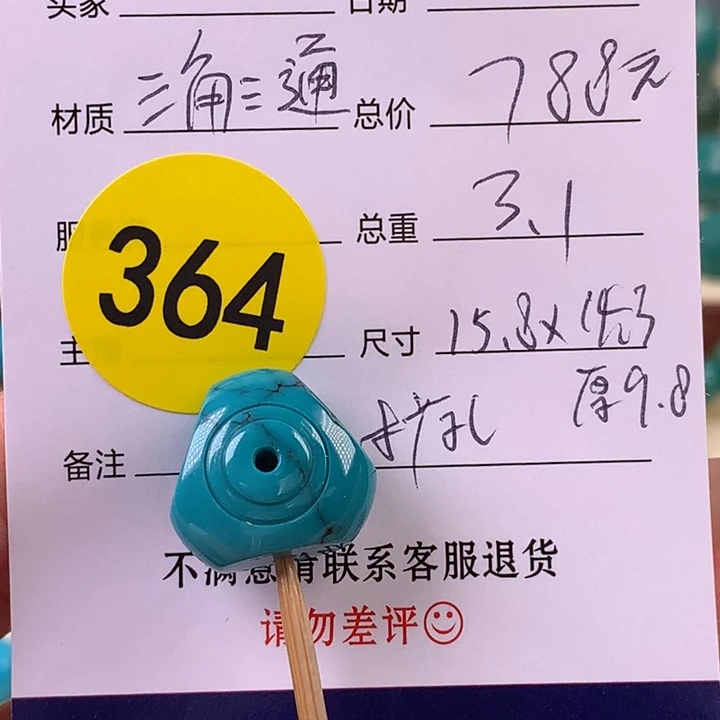 买家 日期
材质 三角三通 总价 788元
364
总重 3.1
尺寸 15.8x14.3
厚9.8
备注 扩孔
不满意请联系客服退货
请勿差评